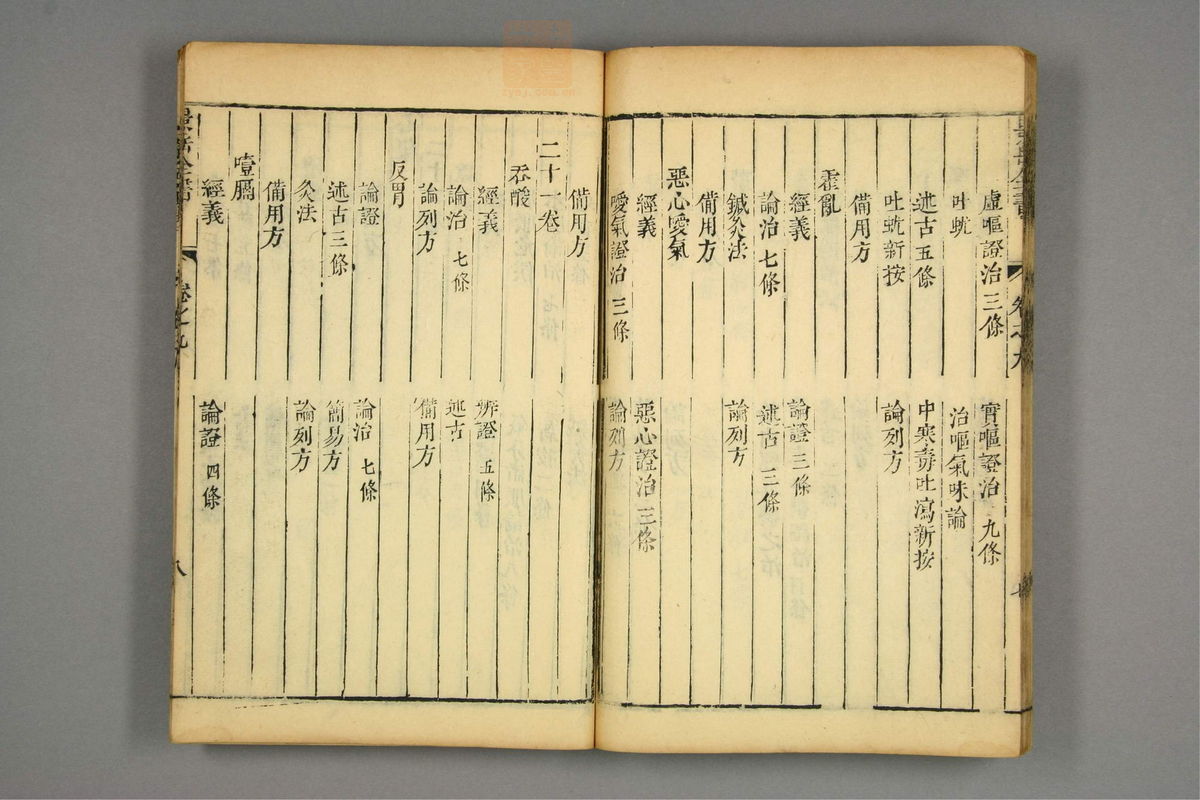 虛嘔證治 三條 實嘔證治 九條
吐蚘 治嘔氣味論
述古 五條 中寒毒吐瀉新按
吐蚘新按 論列方
備用方
霍亂
經義 論證 三條
論治 七條 述古 三條
鍼灸法 論列方
備用方
惡心噯氣
經義 惡心證治 三條
噯氣證治 三條 論列方
備用方
二十一卷
吞酸
經義 辨證 五條
論治 七條 述古
論列方 備用方
反胃
論證 論治 七條
述古 三條 簡易方
灸法 論列方
備用方
噎膈
經義 論證 四條
卷之九
八